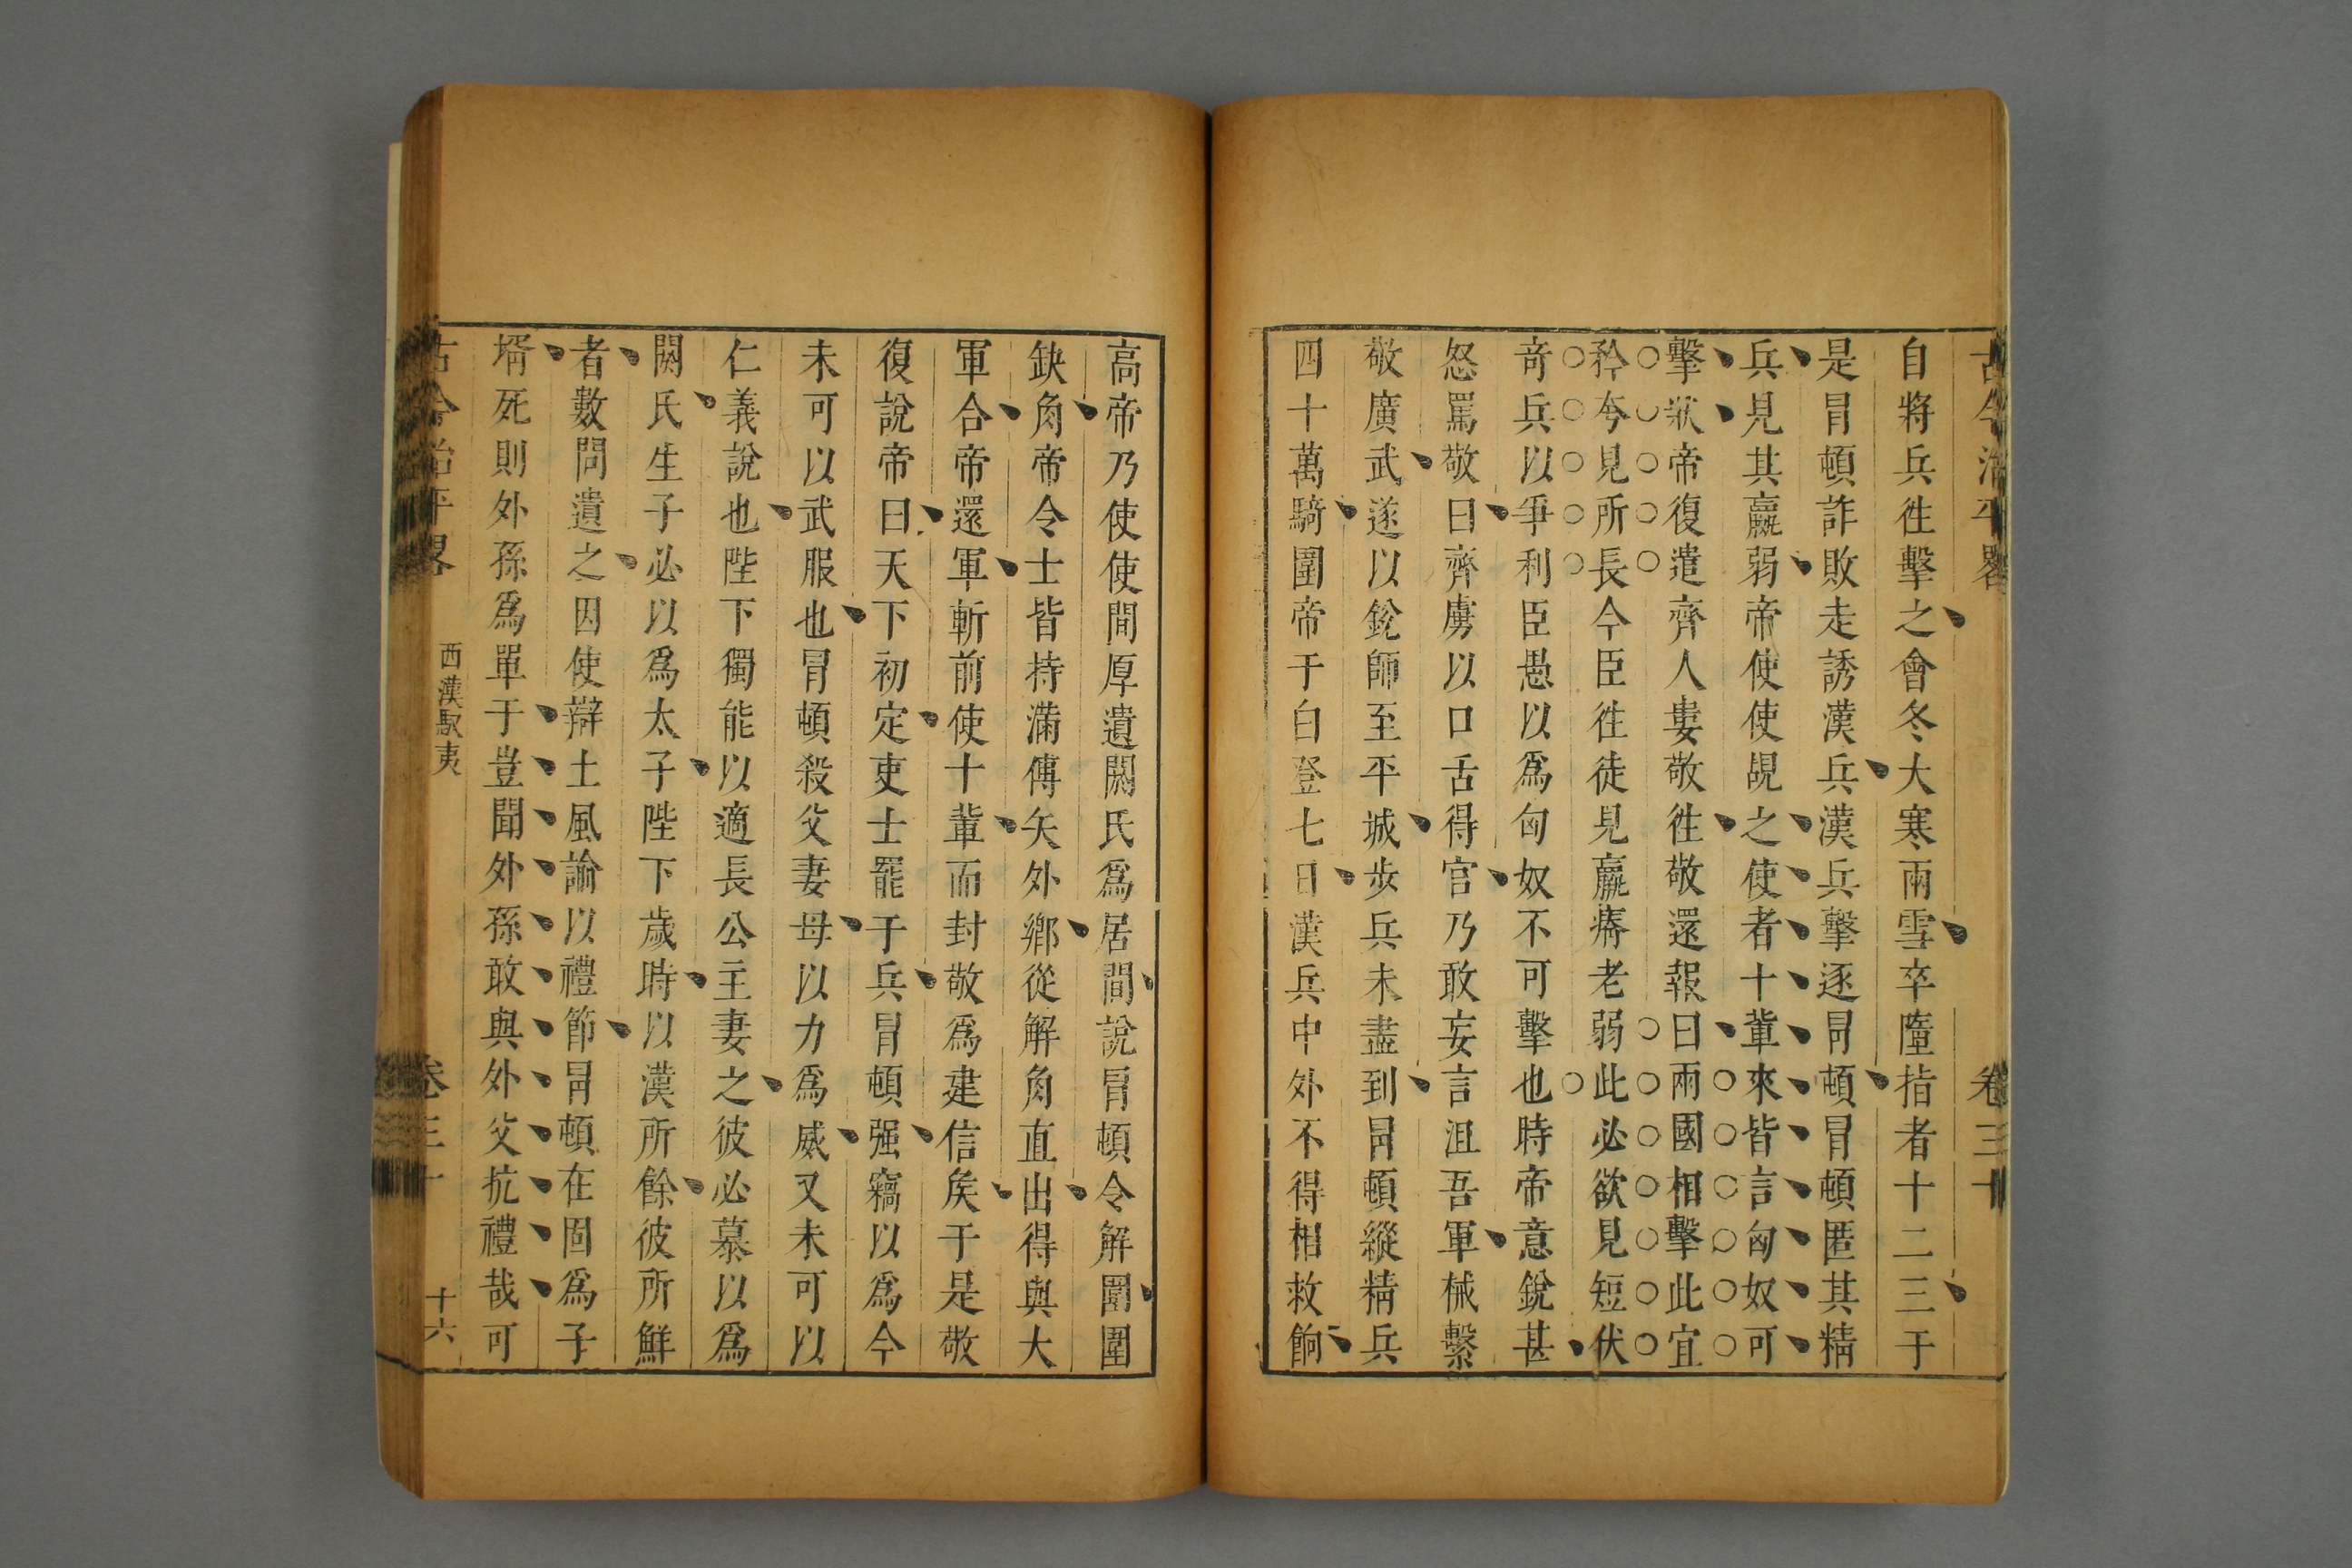 古今治平畧
卷三十
自將兵徃擊之會冬大寒雨雪卒墮指者十二三于
是冐頓詐敗走誘漢兵漢兵擊逐冐頓冐頓匿其精
兵見其羸弱帝使使覘之使者十輩來皆言匈奴可
擊狀帝復遣齊人婁敬徃敬還報曰兩國相擊此宜
矜夸見所長今臣徃徒見羸瘠老弱此必欲見短伏
竒兵以爭利臣愚以爲匈奴不可擊也時帝意銳甚
怒罵敬曰齊虜以口舌得官乃敢妄言沮吾軍械繫
敬廣武遂以銳師至平城步兵未盡到冐頓縱精兵
四十萬騎圍帝于白登七日漢兵中外不得相救餉
高帝乃使使間厚遺閼氏爲居間說冐頓令解圍圍
缺角帝令士皆持滿傅矢外鄉從解角直出得與大
軍合帝還軍斬前使十輩而封敬爲建信矦于是敬
復說帝曰天下初定吏士罷于兵冐頓强竊以爲今
未可以武服也冐頓殺父妻母以力爲威又未可以
仁義說也陛下獨能以適長公主妻之彼必慕以爲
閼氏生子必以爲太子陛下歲時以漢所餘彼所鮮
者數問遺之因使辯士風諭以禮節冐頓在固爲子
壻死則外孫爲單于豈聞外孫敢與外父抗禮哉可
古今治平畧
西漢馭夷
卷三十
十六